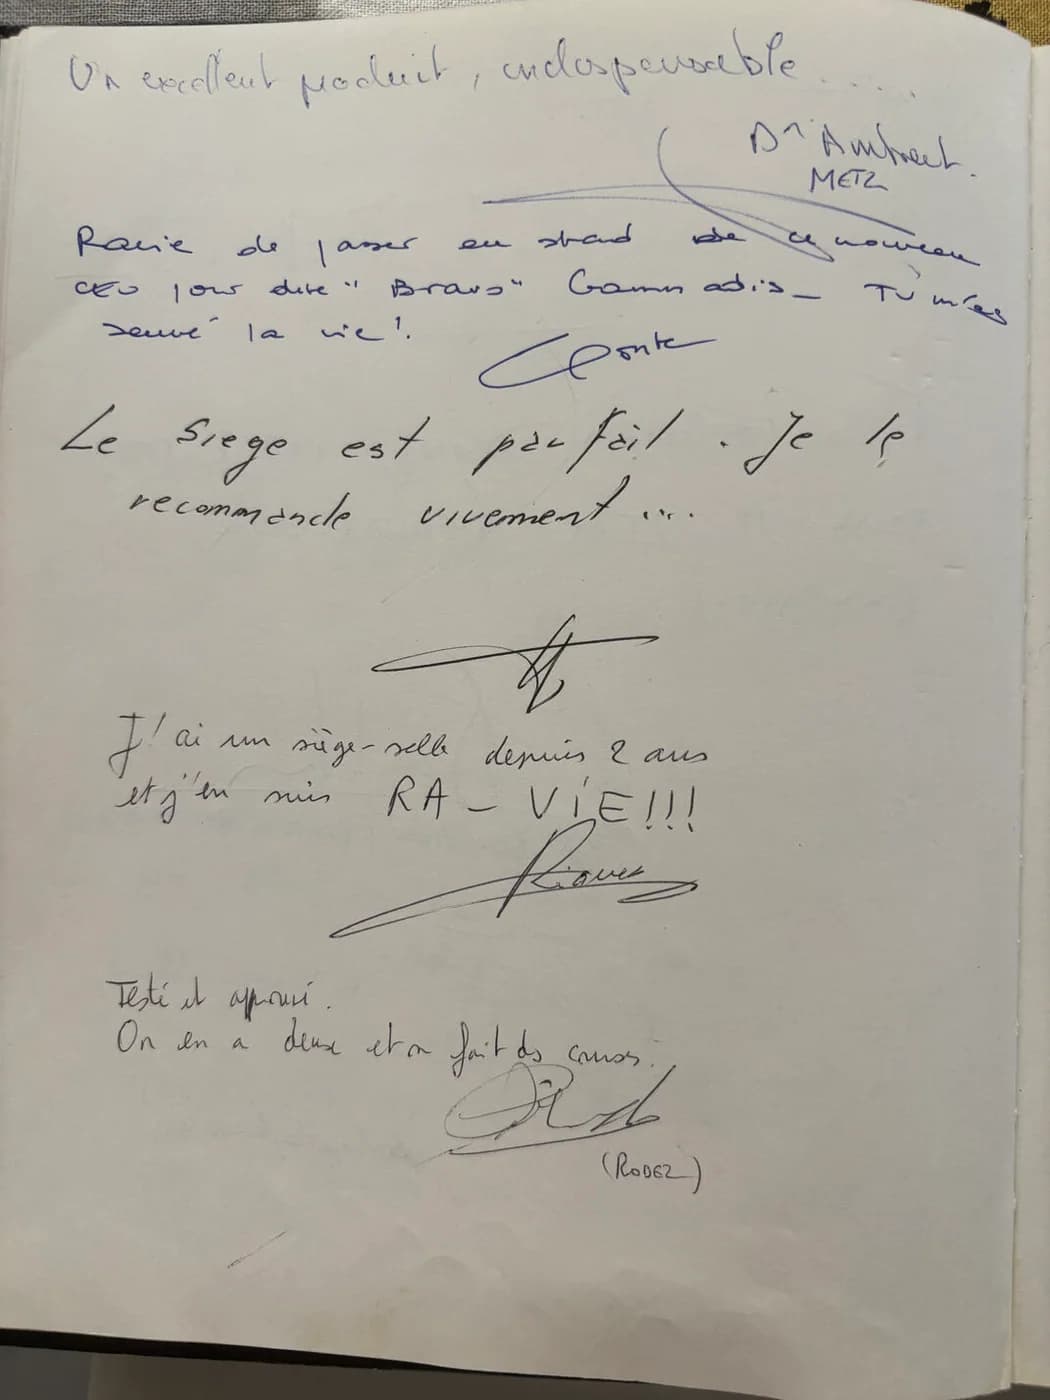 Un excellent produit, indispensable.....
Dr
METZ
Ravie de passer au stand de ce nouveau
CEO pour dire "Bravo" Gammadis_ Tu m'as
sauvé la vie!
Conte
Le Siege est parfait. Je le
recommande vivement....
J'ai un siège-selle depuis 2 ans
et j'en suis RA-VIE!!!
Testé et approuvé.
On en a deux et on fait des courses.
(RODEZ)